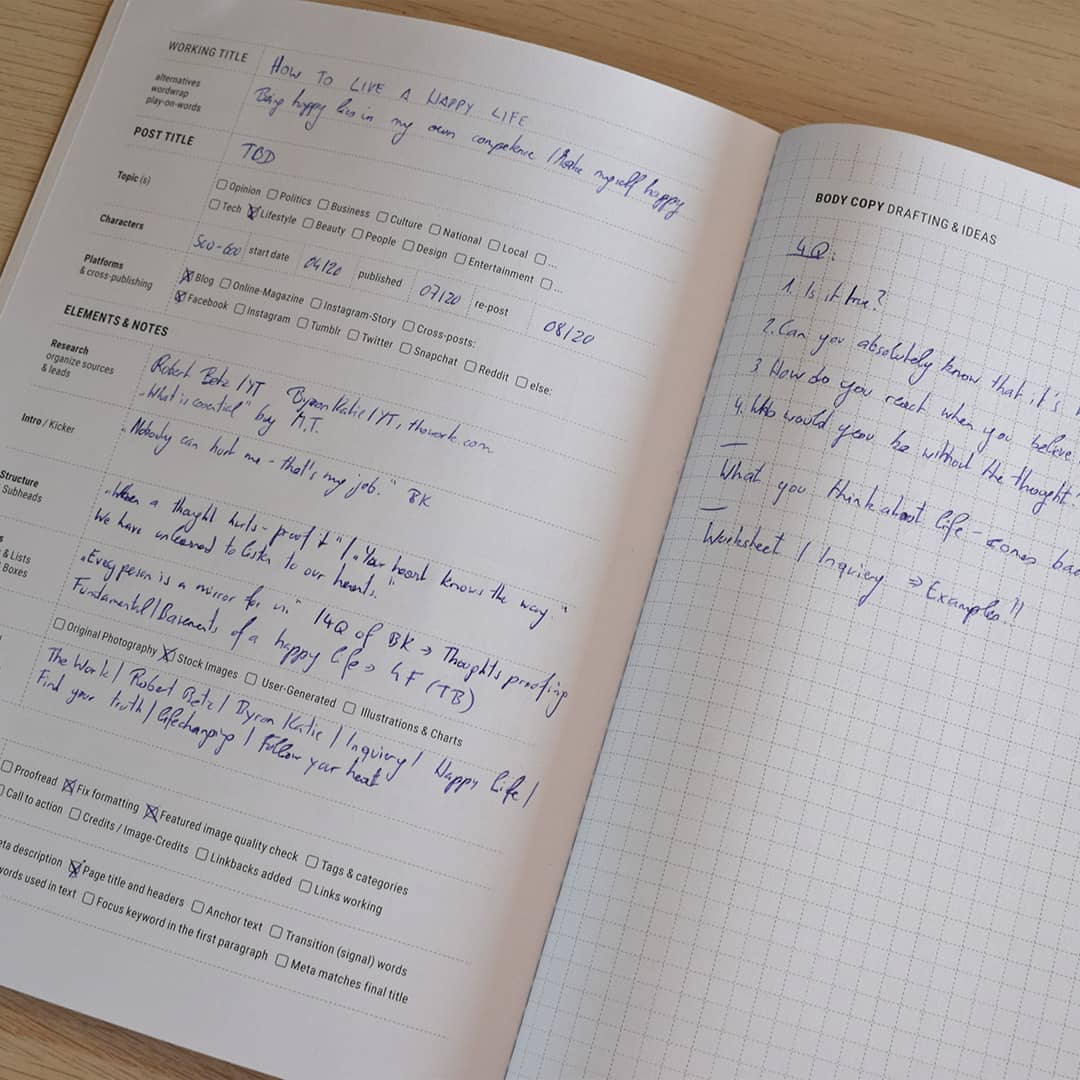 WORKING TITLE
alternatives
wordwrap
play-on-words
HOW TO LIVE A HAPPY LIFE
Being happy lies in my own competence / Make myself happy
POST TITLE
TBD
Topic (s)
Opinion Politics Business Culture National Local ...
Tech Lifestyle Beauty People Design Entertainment ...
Characters
500-600 start date 04/20 published 07/20 re-post 08/20
Platforms
& cross-publishing
Blog Online-Magazine Instagram-Story Cross-posts:
Facebook Instagram Tumblr Twitter Snapchat Reddit else:
ELEMENTS & NOTES
Research
organize sources
& leads
Robert Betz / YT Byron Katie / YT, thework.com
„What is essential" by M.T.
Intro / Kicker
„Nobody can hurt me - that's my job." BK
Structure
Subheads
„When a thought hurts - proof it" / „Your heart knows the way."
We have unlearned to listen to our hearts."
& Lists
Boxes
„Every person is a mirror for us." / 4Q of BK → Thoughts proofing
Fundamental / Basements of a happy life → 4F (TB)
Original Photography Stock Images User-Generated Illustrations & Charts
The Work / Robert Betz / Byron Katie / Inquiery / Happy Life /
Find your truth / lifechanging / Follow your heat
Proofread Fix formatting Featured image quality check Tags & categories
Call to action Credits / Image-Credits Linkbacks added Links working
description Page title and headers Anchor text Transition (signal) words
used in text Focus keyword in the first paragraph Meta matches final title
BODY COPY DRAFTING & IDEAS
4Q:
1. Is it true?
2. Can you absolutely know that it's
3 How do you react when you believe
4. Who would you be without the thought?
—
What you think about life - comes
—
Worksheet / Inquiery ⇒ Examples!!